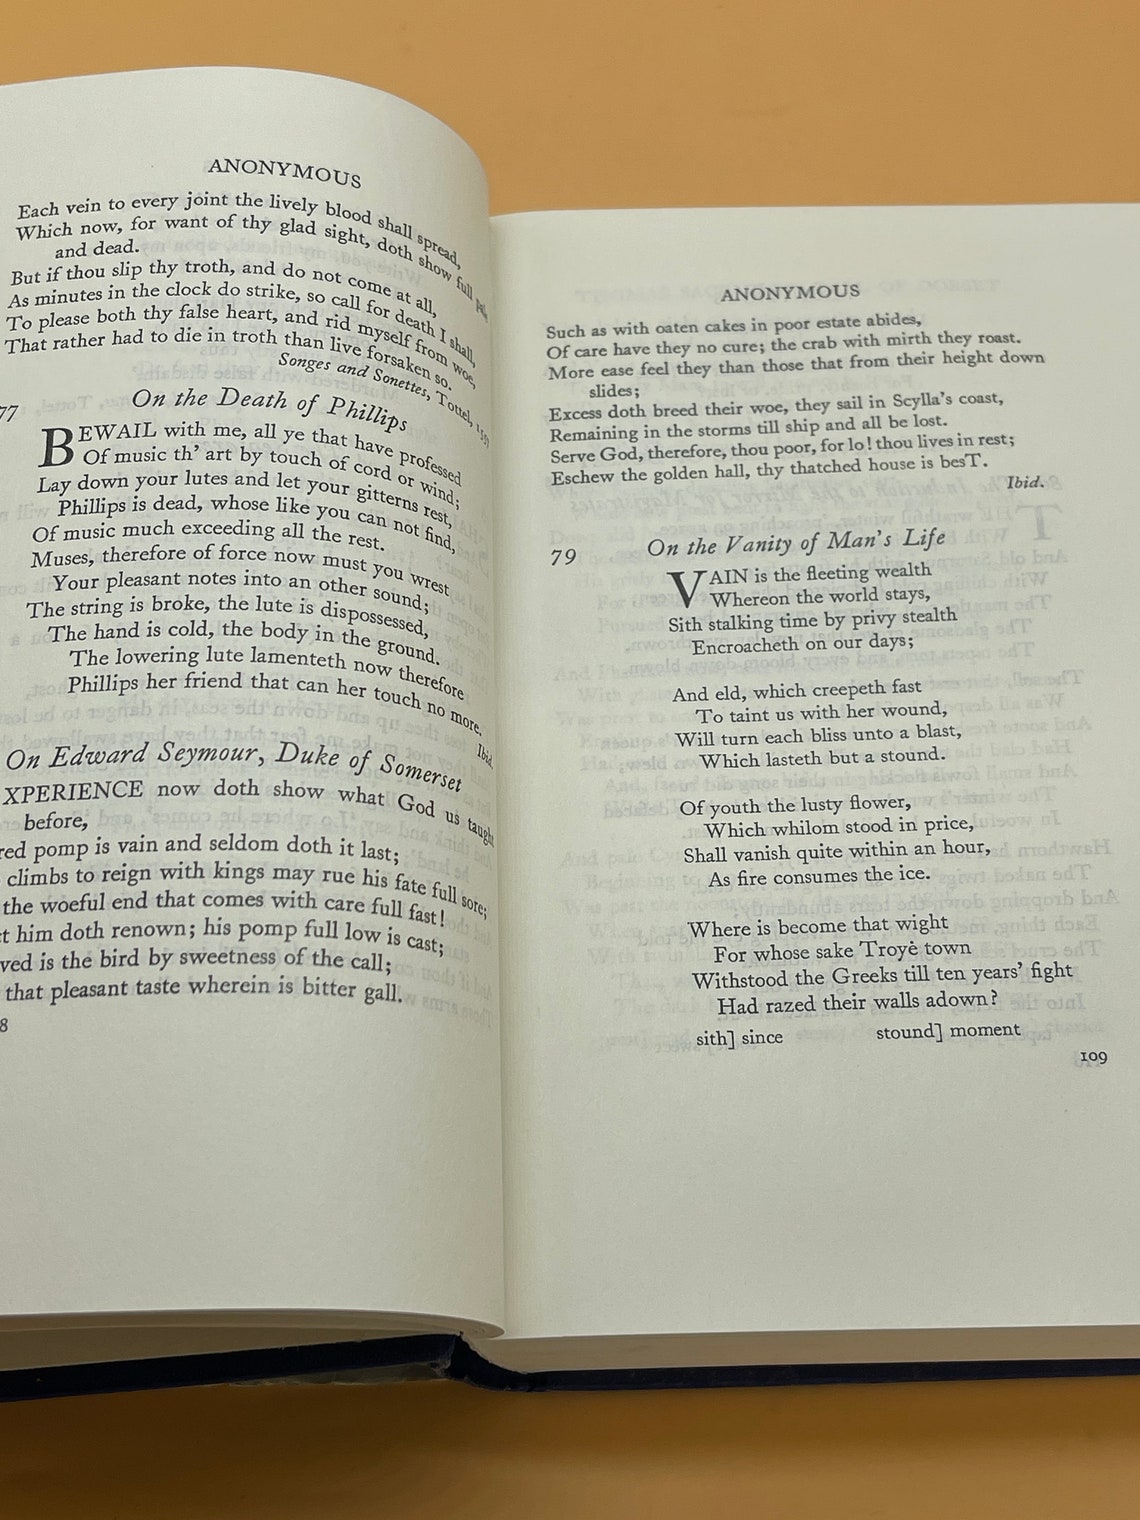 ANONYMOUS
Each vein to every joint the lively blood shall spread,
Which now, for want of thy glad sight, doth show full
and dead.
But if thou slip thy troth, and do not come at all,
As minutes in the clock do strike, so call for death I shall,
To please both thy false heart, and rid myself from woe,
That rather had to die in troth than live forsaken so.
Songes and Sonettes, Tottel, 1557
77
On the Death of Phillips
BEWAIL with me, all ye that have professed
Of music th' art by touch of cord or wind;
Lay down your lutes and let your gitterns rest,
Phillips is dead, whose like you can not find,
Of music much exceeding all the rest.
Muses, therefore of force now must you wrest
Your pleasant notes into an other sound;
The string is broke, the lute is dispossessed,
The hand is cold, the body in the ground.
The lowering lute lamenteth now therefore
Phillips her friend that can her touch no more.
Ibid.
On Edward Seymour, Duke of Somerset
XPERIENCE now doth show what God us taught
before,
red pomp is vain and seldom doth it last;
climbs to reign with kings may rue his fate full sore;
the woeful end that comes with care full fast!
t him doth renown; his pomp full low is cast;
ved is the bird by sweetness of the call;
that pleasant taste wherein is bitter gall.
8
ANONYMOUS
Such as with oaten cakes in poor estate abides,
Of care have they no cure; the crab with mirth they roast.
More ease feel they than those that from their height down
slides;
Excess doth breed their woe, they sail in Scylla's coast,
Remaining in the storms till ship and all be lost.
Serve God, therefore, thou poor, for lo! thou lives in rest;
Eschew the golden hall, thy thatched house is besT.
Ibid.
79
On the Vanity of Man's Life
VAIN is the fleeting wealth
Whereon the world stays,
Sith stalking time by privy stealth
Encroacheth on our days;
And eld, which creepeth fast
To taint us with her wound,
Will turn each bliss unto a blast,
Which lasteth but a stound.
Of youth the lusty flower,
Which whilom stood in price,
Shall vanish quite within an hour,
As fire consumes the ice.
Where is become that wight
For whose sake Troyè town
Withstood the Greeks till ten years' fight
Had razed their walls adown?
sith] since stound] moment
109